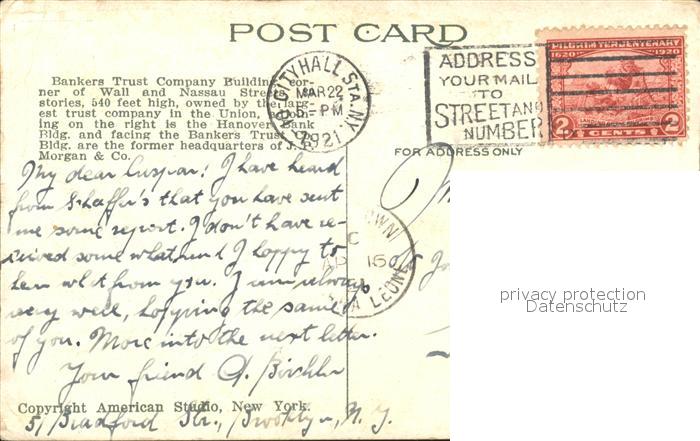 POST CARD
Bankers Trust Company Building, cor-
ner of Wall and Nassau Streets,
stories, 540 feet high, owned by the larg-
est trust company in the Union,
ing on the right is the Hanover Bank
Bldg. and facing the Bankers Trust
Bldg. are the former headquarters of J.
Morgan & Co.
CITY HALL STA. N.Y.
MAR 22
5- PM
1921
ADDRESS
YOUR MAIL
TO
STREET AND
NUMBER
PILGRIM TERCENTENARY
1620 1920
2 CENTS 2
FOR ADDRESS ONLY
My dear Caspar! I have heard
from Schaffer's that you have sent
me some report. I don't have re-
ceived some what and I happy to
hear what from you. I am always
very well, hopping the same
of you. More into the next letter.
Your friend
Copyright American Studio, New York.
51 Bradford Str., Brooklyn, N. Y.
TOWN
C
AP 16
LEONE
privacy protection
Datenschutz